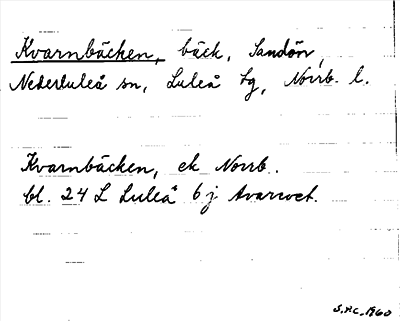 Kvarnbäcken, bäck, Sandön,
Nederluleå sn, Luleå tg, Norrb. l.
Kvarnbäcken, ek Norrb.
bl. 24 L Luleå 6 j
S.H.C. 1960